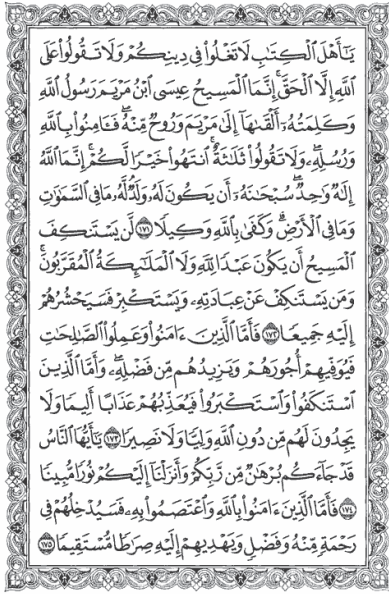 يَـٰٓأَهْلَ ٱلْكِتَـٰبِ لَا تَغْلُوا۟ فِى دِينِكُمْ وَلَا تَقُولُوا۟ عَلَى
ٱللَّهِ إِلَّا ٱلْحَقَّ ۚ إِنَّمَا ٱلْمَسِيحُ عِيسَى ٱبْنُ مَرْيَمَ رَسُولُ ٱللَّهِ
وَكَلِمَتُهُۥٓ أَلْقَىٰهَآ إِلَىٰ مَرْيَمَ وَرُوحٌ مِّنْهُ ۖ فَـَٔامِنُوا۟ بِٱللَّهِ
وَرُسُلِهِۦ ۖ وَلَا تَقُولُوا۟ ثَلَـٰثَةٌ ۚ ٱنتَهُوا۟ خَيْرًا لَّكُمْ ۚ إِنَّمَا ٱللَّهُ
إِلَـٰهٌ وَٰحِدٌ ۖ سُبْحَـٰنَهُۥٓ أَن يَكُونَ لَهُۥ وَلَدٌ ۘ لَّهُۥ مَا فِى ٱلسَّمَـٰوَٰتِ
وَمَا فِى ٱلْأَرْضِ ۗ وَكَفَىٰ بِٱللَّهِ وَكِيلًا ١٧١ لَّن يَسْتَنكِفَ
ٱلْمَسِيحُ أَن يَكُونَ عَبْدًا لِّلَّهِ وَلَا ٱلْمَلَـٰٓئِكَةُ ٱلْمُقَرَّبُونَ ۚ
وَمَن يَسْتَنكِفْ عَنْ عِبَادَتِهِۦ وَيَسْتَكْبِرْ فَسَيَحْشُرُهُمْ
إِلَيْهِ جَمِيعًا ١٧٢ فَأَمَّا ٱلَّذِينَ ءَامَنُوا۟ وَعَمِلُوا۟ ٱلصَّـٰلِحَـٰتِ
فَيُوَفِّيهِمْ أُجُورَهُمْ وَيَزِيدُهُم مِّن فَضْلِهِۦ ۖ وَأَمَّا ٱلَّذِينَ
ٱسْتَنكَفُوا۟ وَٱسْتَكْبَرُوا۟ فَيُعَذِّبُهُمْ عَذَابًا أَلِيمًا وَلَا
يَجِدُونَ لَهُم مِّن دُونِ ٱللَّهِ وَلِيًّا وَلَا نَصِيرًا ١٧٣ يَـٰٓأَيُّهَا ٱلنَّاسُ
قَدْ جَآءَكُم بُرْهَـٰنٌ مِّن رَّبِّكُمْ وَأَنزَلْنَآ إِلَيْكُمْ نُورًا مُّبِينًا
١٧٤ فَأَمَّا ٱلَّذِينَ ءَامَنُوا۟ بِٱللَّهِ وَٱعْتَصَمُوا۟ بِهِۦ فَسَيُدْخِلُهُمْ فِى
رَحْمَةٍ مِّنْهُ وَفَضْلٍ وَيَهْدِيهِمْ إِلَيْهِ صِرَٰطًا مُّسْتَقِيمًا ١٧٥